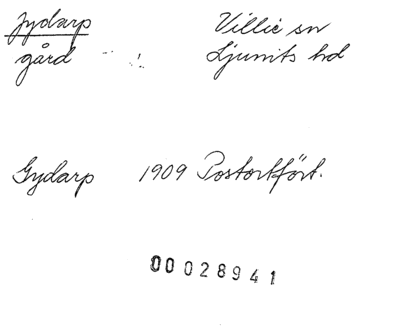 Jydarp Villie sn
gård Ljunits hd
Gydarp 1909 Postortsfört.
00028941